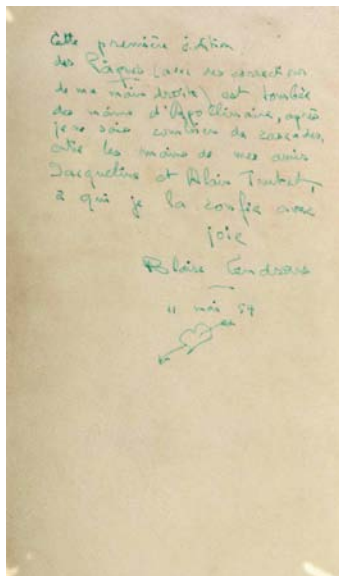 Cette première édition
des Pâques (avec des corrections
de ma main droite) est tombée
des mains d'Apollinaire, après
je ne sais combien de cascades,
les mains de mes amis
Jacqueline et Alain Trutat,
à qui je la confie avec
joie
Blaise Cendrars
11 mai 54